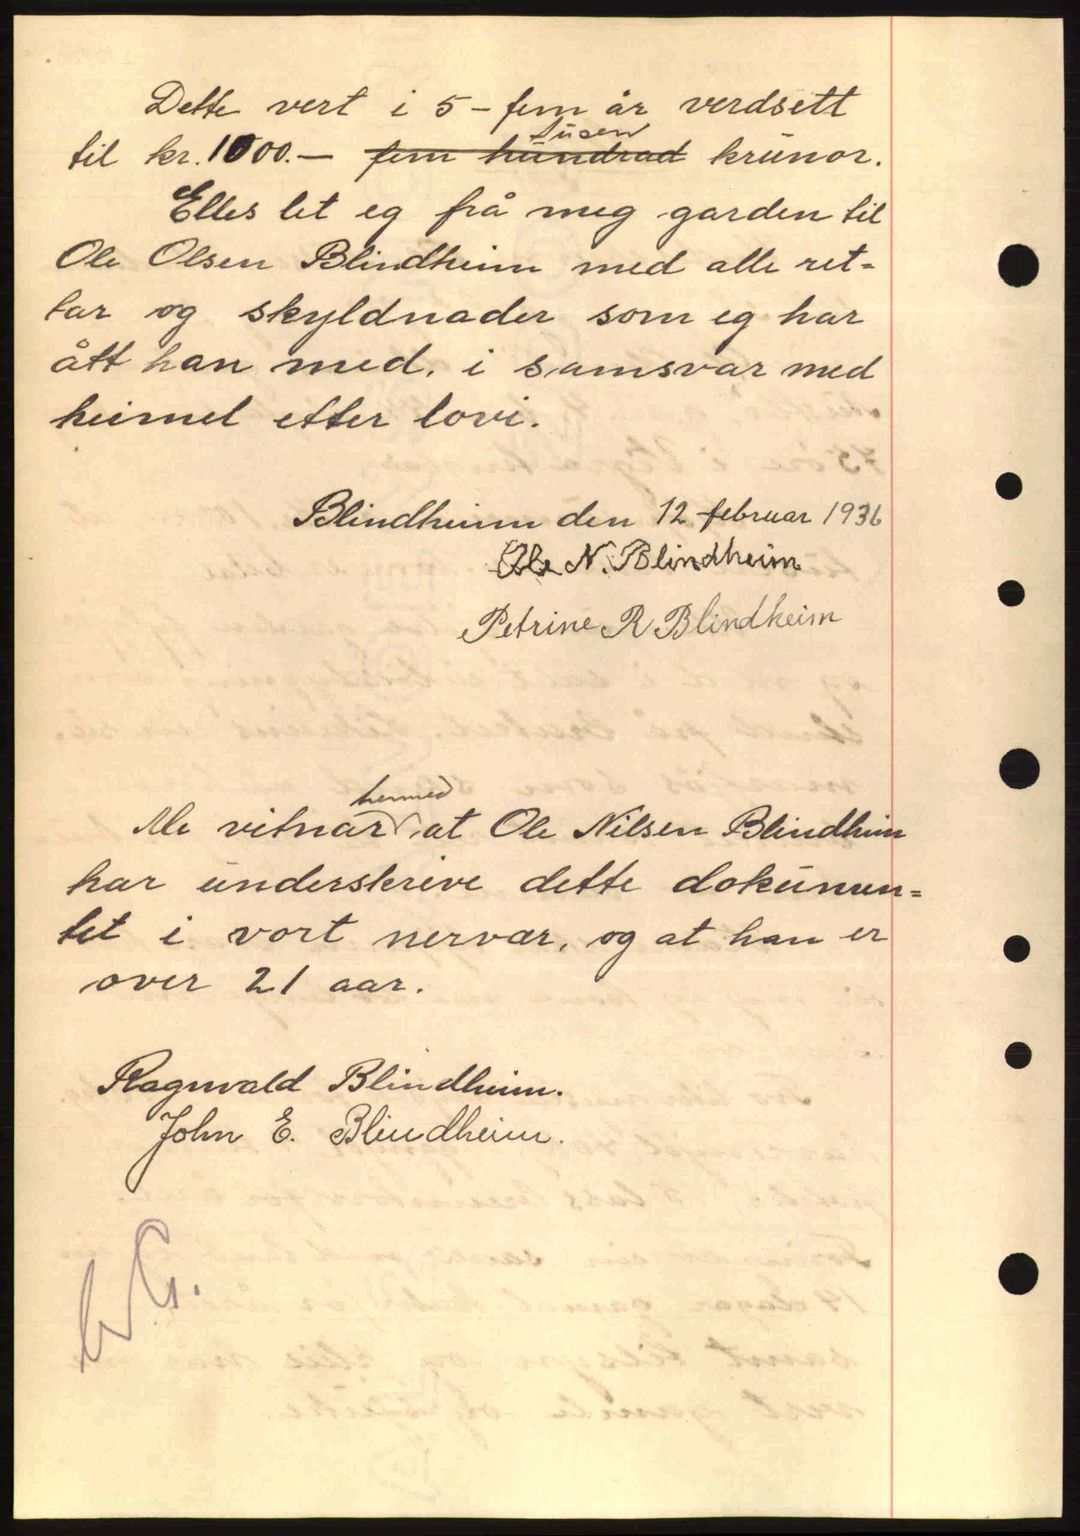 Dette vert i 5 - fem år verdsett
tusen
til kr. 1000.— fem hundrad krunor.
Elles let eg frå meg garden til
Ole Olsen Blindheim med alle ret-
tar og skyldnader som eg har
ått han med, i samsvar med
heimel etter lovi.
Blindheim den 12 februar 1936
Ole N. Blindheim
Petrine R Blindheim
hermed
Me vitnar at Ole Nilsen Blindheim
har underskreve dette dokumen=
tet i vort nervær, og at han er
over 21 aar.
Ragnvald Blindheim.
John E. Blindheim.